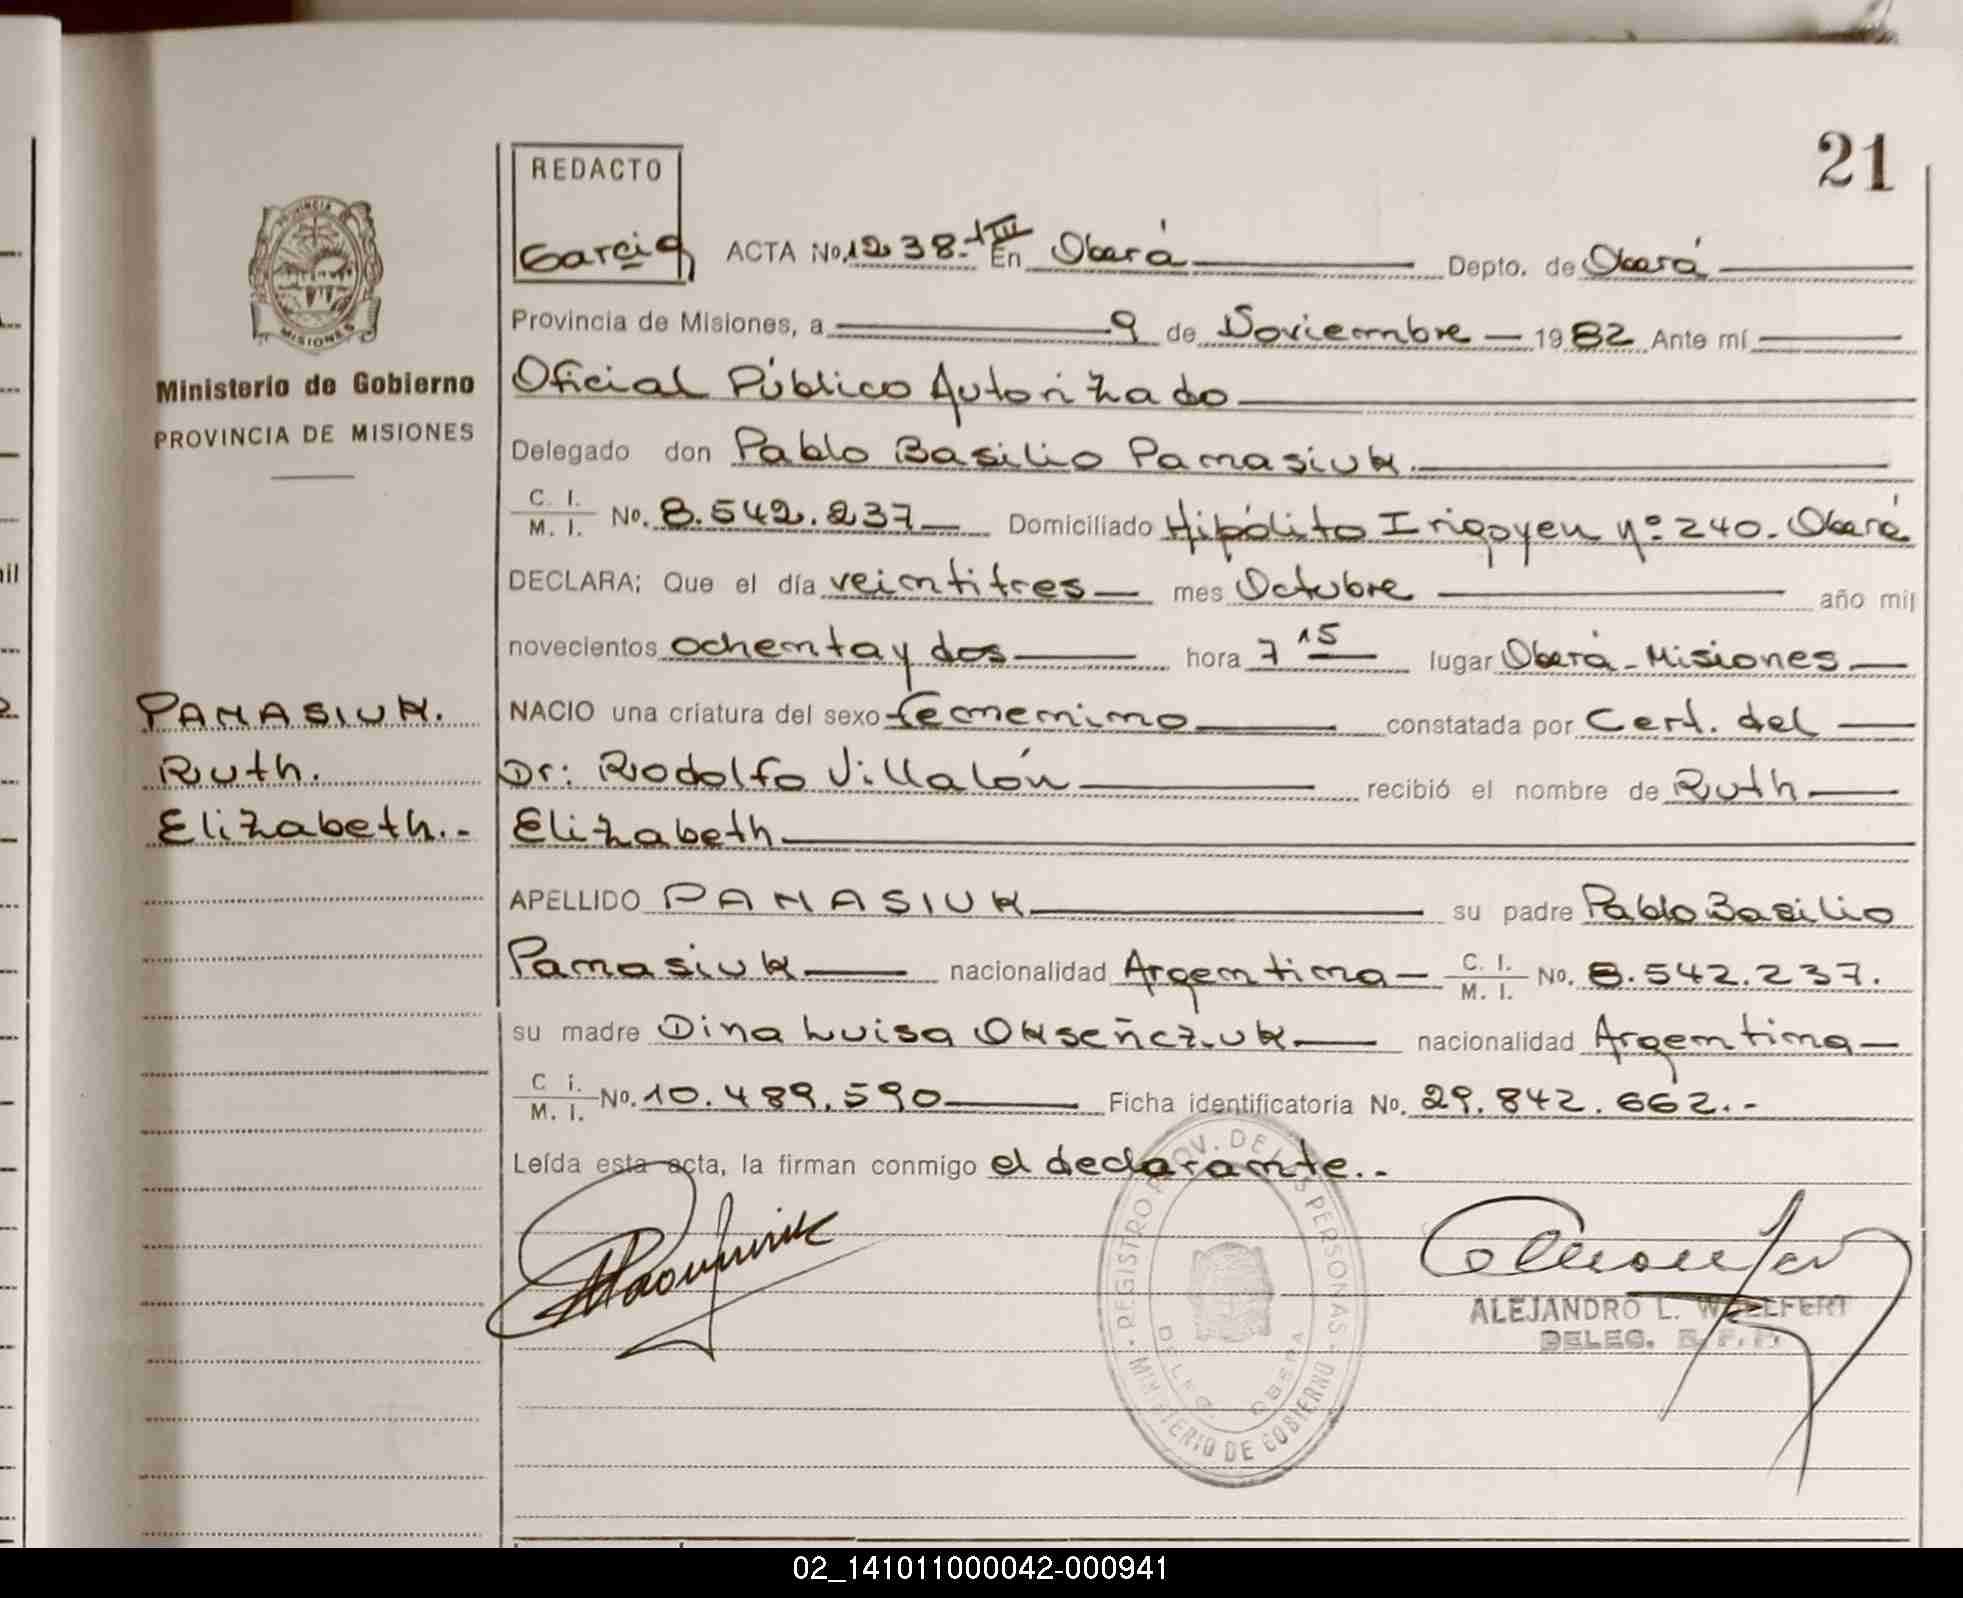 21
REDACTO
Garcia
ACTA No. 1238-TIII En Oberá Depto. de Oberá
Provincia de Misiones, a 9 de Noviembre 1982 Ante mí
Oficial Público Autorizado
Delegado don Pablo Basilio Panasiuk
C. I. / M. I. No. 8.542.237 Domiciliado Hipólito Irigoyen Nº 240. Oberá
DECLARA; Que el día veintitres mes Octubre año mil
novecientos ochenta y dos hora 7 15 lugar Oberá - Misiones
NACIO una criatura del sexo femenino constatada por Cert. del
Dr: Rodolfo Villalón recibió el nombre de Ruth
Elizabeth
APELLIDO PANASIUK su padre Pablo Basilio
Panasiuk nacionalidad Argentina C. I. / M. I. No. 8.542.237.
su madre Dina Luisa Okseñczuk nacionalidad Argentina
C i. / M. I. No. 10.489.590 Ficha identificatoria No. 29.842.662.-
Leída esta acta, la firman conmigo el declarante.-
PROVINCIA DE
MISIONES
Ministerio de Gobierno
PROVINCIA DE MISIONES
PANASIUK.
Ruth.
Elizabeth.-
REGISTRO PROV. DE LAS PERSONAS
MINISTERIO DE GOBIERNO
DELEG. OBERA
ALEJANDRO L.
DELEG. R. P. P.
mil
02_141011000042-000941